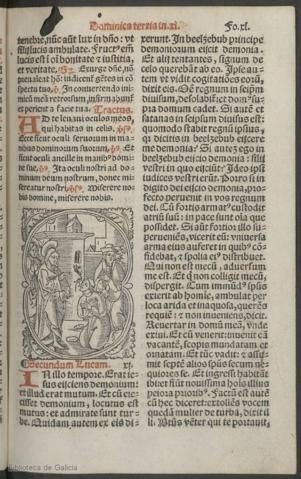 Dominica tertia in xl.
Fo.xl.
tenebre, nũc aũt lux in dño: vt
filij lucis ambulate. Fructꝰ em̃
lucis est ĩ oĩ bonitate ⁊ iustitia,
et veritate. Exurge dñe, nõ
preualeat hõ: iudicent᷑ gẽtes in cõ
spectu tuo. In conuertẽdo ini-
micũ meũ retrorsum, infirmabunt᷑
et perient a facie tua. Tractus.
AD te leuaui oculos meos,
qui habitas in celis.
Ecce sicut oculi seruorum in ma-
nibus dominorum suorum. Et
sicut oculi ancille in manibꝰ domi-
ne sue. Ita oculi nostri ad do-
minum deum nostrum, donec mi-
sereatur nostri. Miserere no-
bis domine, miserere nobis.
Secundum Lucam. xj.
IN illo tempore. Erat ie-
sus eijciens demonium:
et illud erat mutum. Et cũ eie-
cisset demonium, locutus est
mutus: et admirate sunt tur-
be. Quidam autem ex eis di-
xerunt. In beelzebub principe
demoniorum eijcit demonia.
Et alij tentantes, signum de
celo querebãt ab eo. Ipse au-
tem vt vidit cogitatiões eorũ,
dixit eis. Oẽ regnum in seipm̃
diuisum, desolabit᷑: et domꝰ su-
pra domum cadet. Si aũt ⁊ sa-
tanas in seipsum diuisus est:
quomodo stabit regnũ ipsius,
quia dicitis in beelzebub eijcere
me demonia: Si autẽ ego in
beelzebub eijcio demonia: filij
vestri in quo eijciũt? Ideo ipsi
iudices vestri erũt. Porro si in
digito dei eijcio demonia, pro-
fecto peruenit in vos regnum
dei. Cũ fortis armatꝰ custodit
atriũ suũ: in pace sunt oĩa que
possidet. Si aũt fortior illo su-
perueniẽs, vicerit eũ: vniuersa
arma eius auferet in quibꝰ cõ-
fidebat, ⁊ spolia eiꝰ distribuet.
Qui non est mecũ, aduersum
me est. Et q̃ non colligit mecũ,
dispergit. Cum immũdꝰ spũs
exierit ab homĩe, ambulat per
loca arida et inaquosa, querẽs
requiẽ: ⁊ non inueniens, dicit.
Reuertar in domũ meã, vnde
exiui. Et cũ venerit: inuenit eã
vacantẽ, scopis mundatam et
ornatam. Et tũc vadit: ⁊ assu-
mit septẽ alios spũs secum ne-
quiores se. Et ingressi habitãt
ibi: et fiũt nouissima hoĩs illius
peiora priorib᷒. Factũ est autẽ
cũ hec diceret: extollẽs vocem
quedã mulier de turba, dixit il
li. Btũs vẽter qui te portauit,
Biblioteca de Galicia